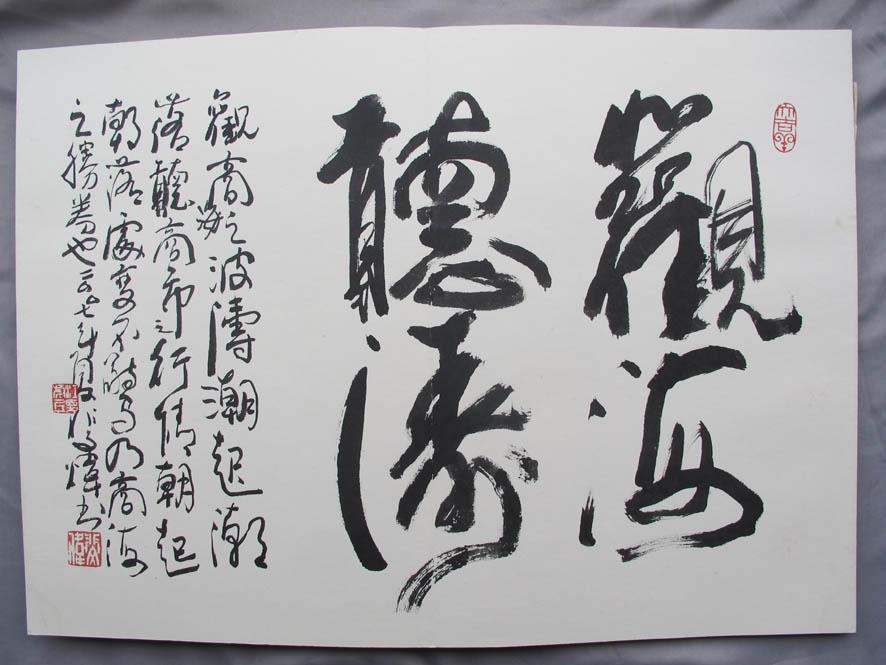 觀海
聽濤
觀商海之波濤潮起潮
落聽商市之行情朝起
朝落處變不驚乃商海
之勝券也